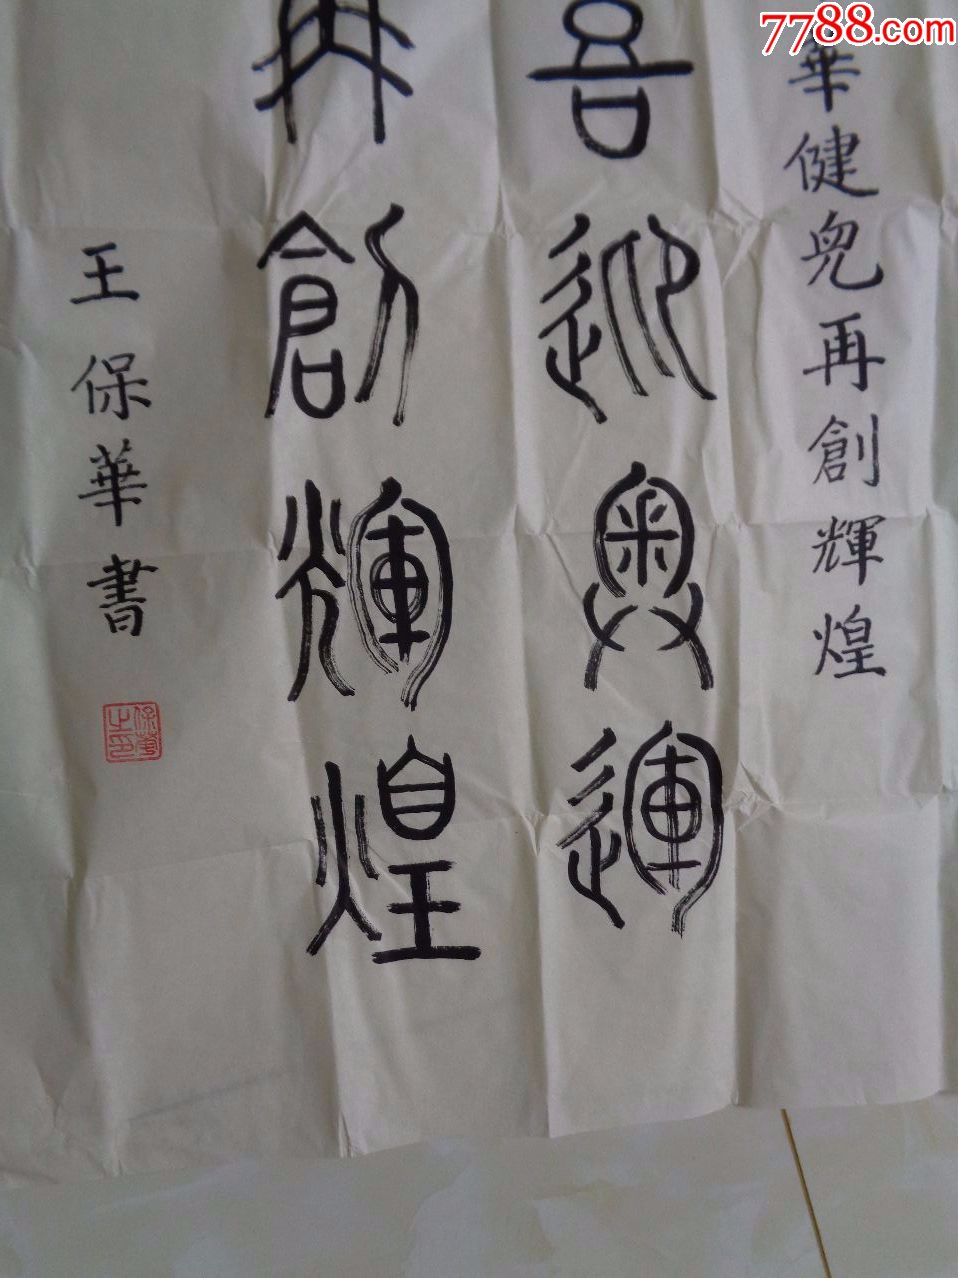 7788.com
華健兒再創輝煌
喜迎奧運
再創輝煌
王保華書
保華之印